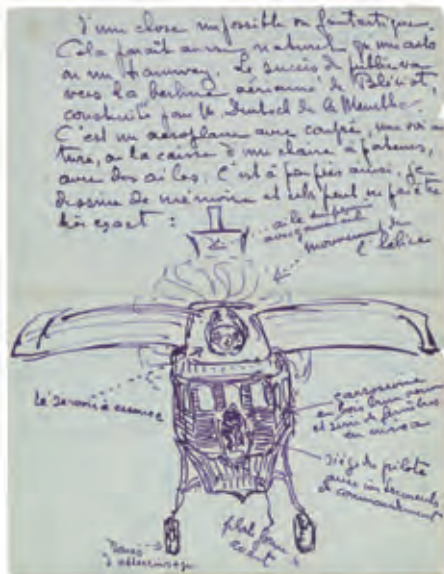 d'une chose impossible ou fantastique.
Cela paraît aussi naturel qu'un auto
ou un tramway. Le succès de public va
vers la berline aérienne de Blériot,
construite pour M. Deutsch de la Meurthe.
C'est un aéroplane avec coupé, une voi
ture, ou la caisse d'une chaise à porteurs,
avec des ailes. C'est à peu près ainsi, je
dessine de mémoire et cela peut ne pas être
très exact :
aile
mouvement de
l'hélice
réservoir à essence
carrosserie
en bois brun verni
et
en mica
siège du pilote
avec instruments
de commandement
plate forme
avant
roues
d'atterrissage